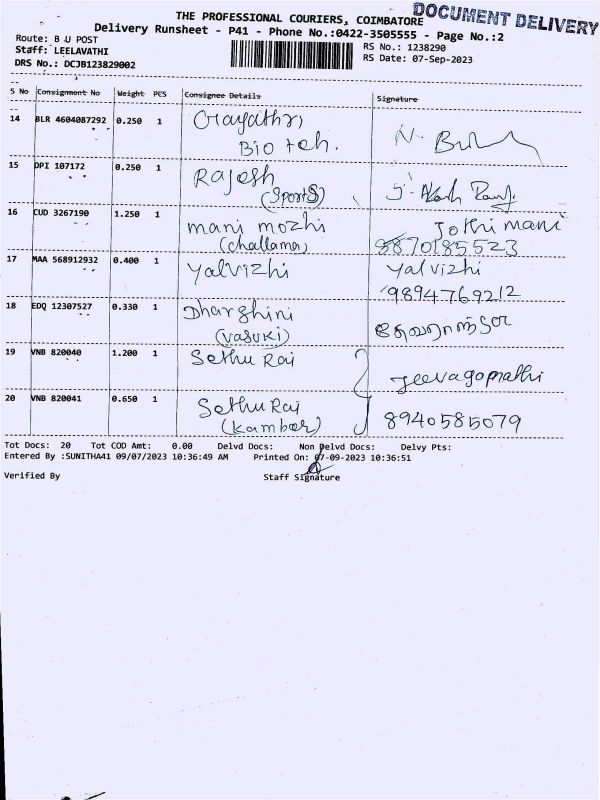 THE PROFESSIONAL COURIERS, COIMBATORE
DOCUMENT DELIVERY
Delivery Runsheet - P41 - Phone No.:0422-3505555 - Page No.:2
Route: B U POST
Staff: LEELAVATHI
DRS No.: DCJB123829002
RS No.: 1238290
RS Date: 07-Sep-2023
S No Consignment No Weight PCS Consignee Details Signature
14 BLR 4604087292 0.250 1 Gayathri
Bio tech.
15 DPI 107172 0.250 1 Rajesh
(Sports)
16 CUD 3267190 1.250 1 mani mozhi Jothi mani
(challama) 8870185523
17 MAA 568912932 0.400 1 yalvizhi yalvizhi
9894769212
18 EDQ 12307527 0.330 1 Dharshini
(vasuki)
19 VNB 820040 1.200 1 Sethu Raj
Jeevagomathi
20 VNB 820041 0.650 1 Sethu Raj
(Kamber) 8940585079
Tot Docs: 20 Tot COD Amt: 0.00 Delvd Docs: Non Delvd Docs: Delvy Pts:
Entered By :SUNITHA41 09/07/2023 10:36:49 AM Printed On: 07-09-2023 10:36:51
Verified By Staff Signature